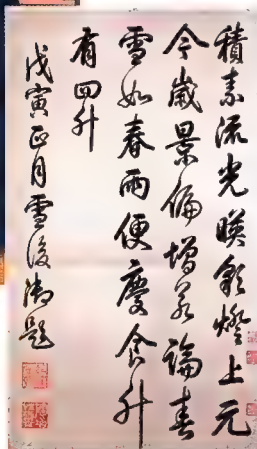 積素流光暎彩燈上元
今歲景偏增若論春
雪如春雨便慶食升
有四升
戊寅正月雪後御題